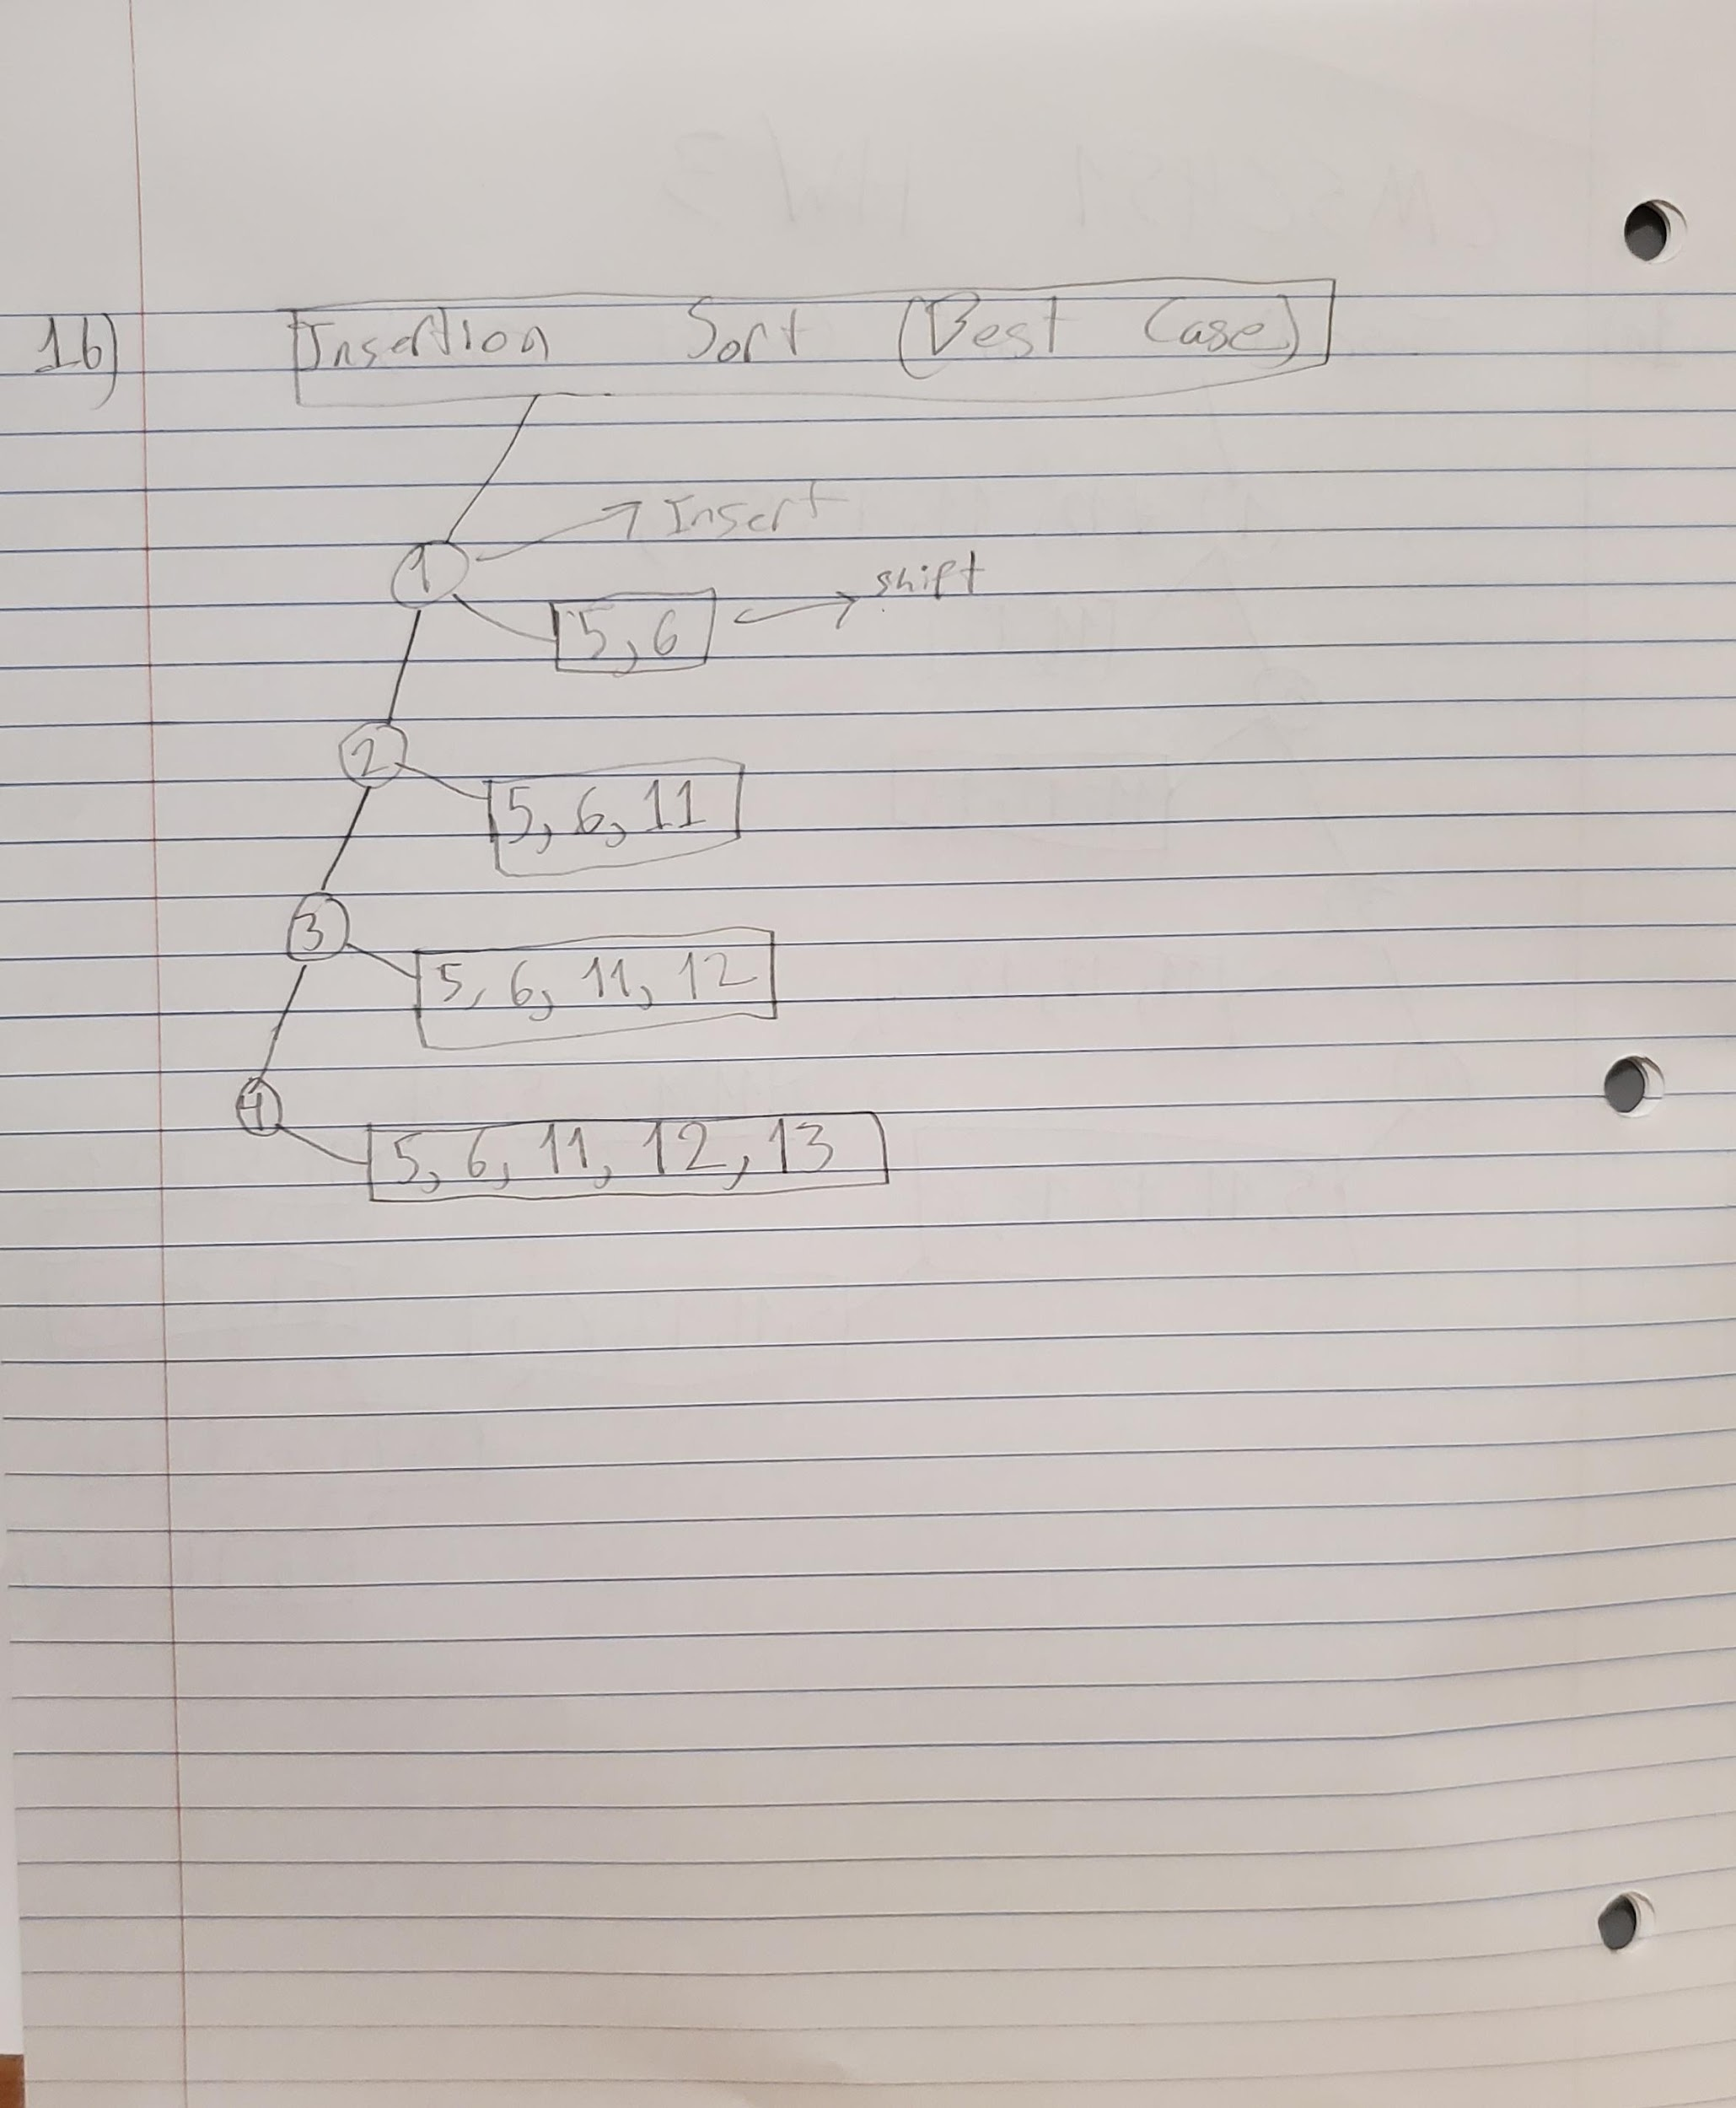 1b) Insertion Sort (Best Case)
1 Insert
5, 6 shift
2
5, 6, 11
3
5, 6, 11, 12
4
5, 6, 11, 12, 13